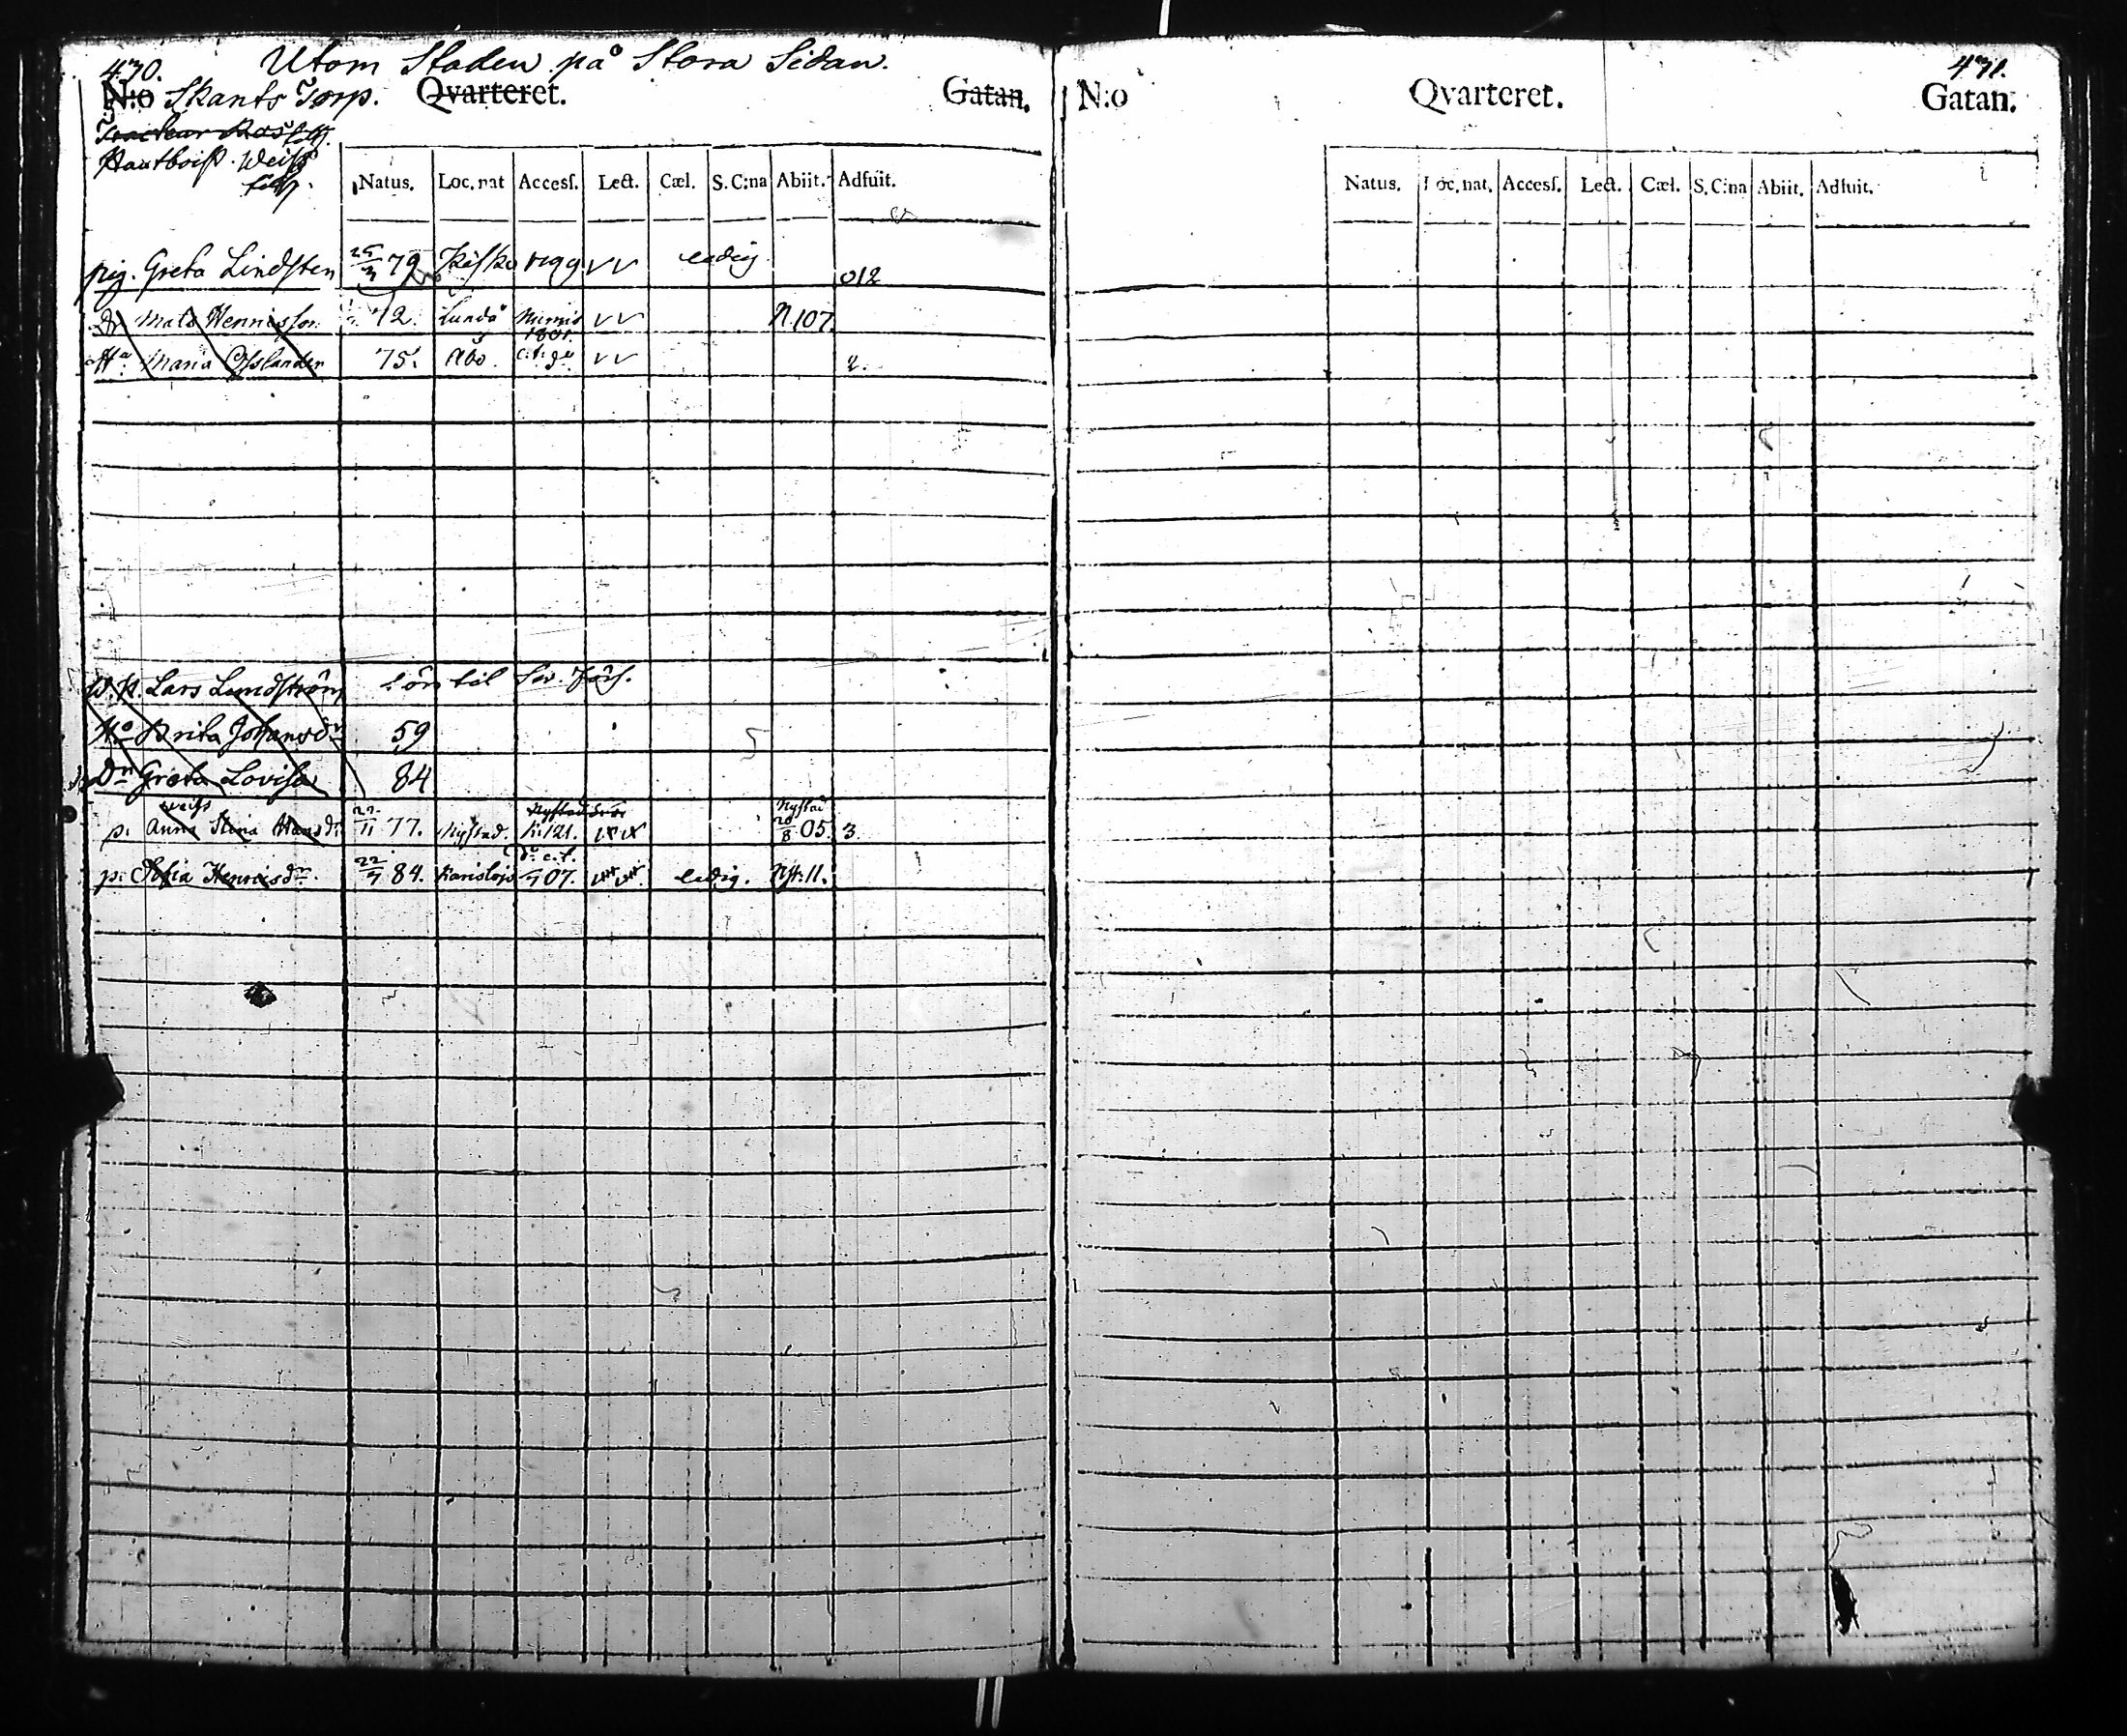 470. Utom Staden på Stora Sidan.
N:o Skants Torp. Qvarteret. Gatan.
Hautboist Weiss
Natus. Loc. nat Access. Lect. Cæl. S. C:na Abiit. Adfuit.
pig. Greta Lindsten 25/3 79 Kisko 1799 v v ledig 012
Dr. Mats Hennisson 72. Lundo Numis 1801. v v N 107
Ha. Maria 75. Åbo. v v 2.
Lars Lundström til
Ha Brita Johansdr 59
Dr Greta Lovisa 84
Weiss Nystad
p. Anna Stina Hansdr 22/11 77. Nystad. N:121. 20/8 05. 3.
p. Sofia Henricsdr 22/7 84. Karislojo 07. ledig. Nst: 11.
471.
N:o Qvarteret. Gatan.
Natus. Loc. nat. Access. Lect. Cæl. S. C:na Abiit. Adfuit.